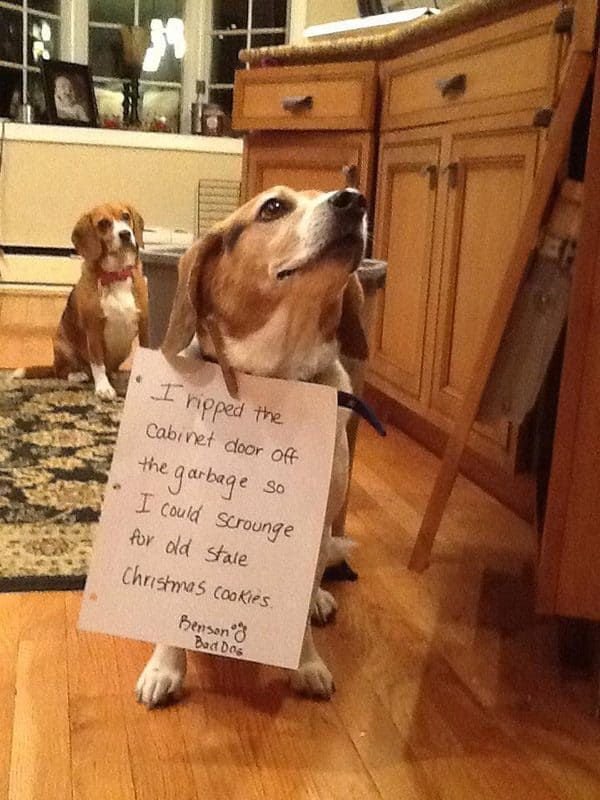 I ripped the
cabinet door off
the garbage so
I could scrounge
for old stale
Christmas cookies.
Benson
Bad Dog